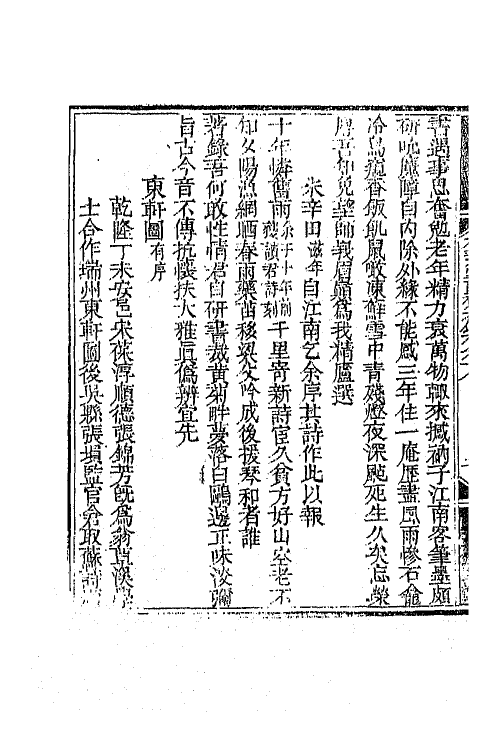 書遇事思奮勉老年精力衰萬物鄣來撼衲子江南客筆墨頗
研吮魔障自内除外緣不能感三年住一庵歷盡風雨慘石龕
冷鳥窺香飯飢鼠啖凍鮮雪中青殘燈夜深颭死生久矣忘榮
辱吾知免堂師我眉顛爲我精廬選
朱辛田滋年自江南乞余序其詩作此以報
十年憐舊雨余于十年前題讀君詩刻千里寄新詩宦久貧方好山空老不
知夕陽漁網晒春雨藥苗移梁父吟成後援琴和者誰
著錄吾何敢性情君自研書裁黃菊畔夢落白鷗邊正味淡彌
旨古今音不傳抗懷扶大雅眞僞辨宜先
東軒圖有序
乾隆丁未安邑宋葆淳順德張錦芳旣爲翁覃溪學
士合作瑞州東軒圖後吳縣張塤監官兪取蘇詩